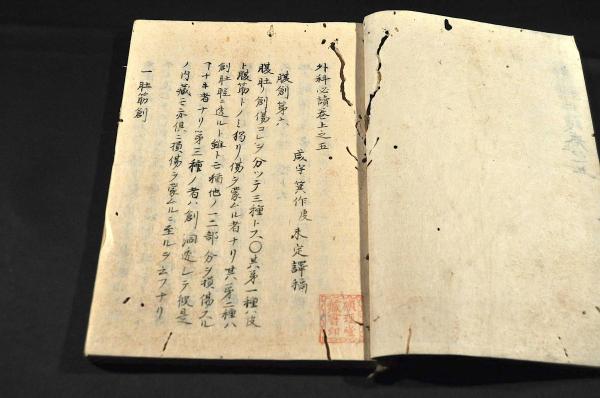 外科必讀卷上之五
咸宇箕作虔未定譯稿
腹創第六
腹肚ノ創傷コレヲ分ツテ三種トス〇其第一種ハ皮
ト腹筋トノミ獨リ傷ヲ蒙ムル者ナリ其第二種ハ
創肚腔ニ透ルト雖トモ猶他ノ一二部分ヲ損傷スル
者ナリ第三種ノ者ハ創洞透シテ彼是
ノ内臓モ亦倶ニ損傷ヲ蒙ムルニ至ルヲ云フナリ
一肚筋創